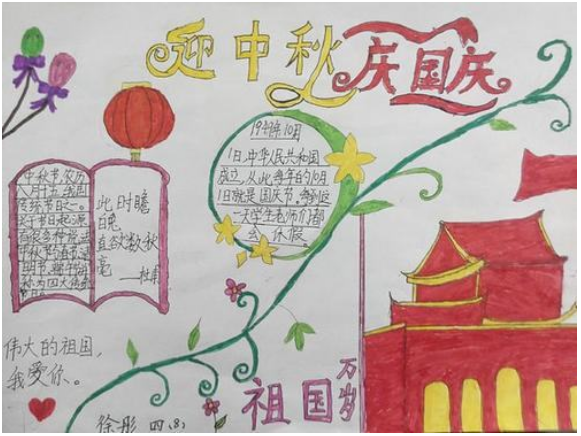 迎中秋 庆国庆
中秋节,农历
八月十五,我国
传统节日之一。
关于节日起源
有很多种说法
此时瞻
白兔
直欲数秋
毫
——杜甫
1949年10月
1日,中华人民共和国
成立,从此每年的10月
1日就是国庆节。每到这
一天学生老师们都
会休假
伟大的祖国,
我爱你。
祖国
万岁
徐彤 四(8)